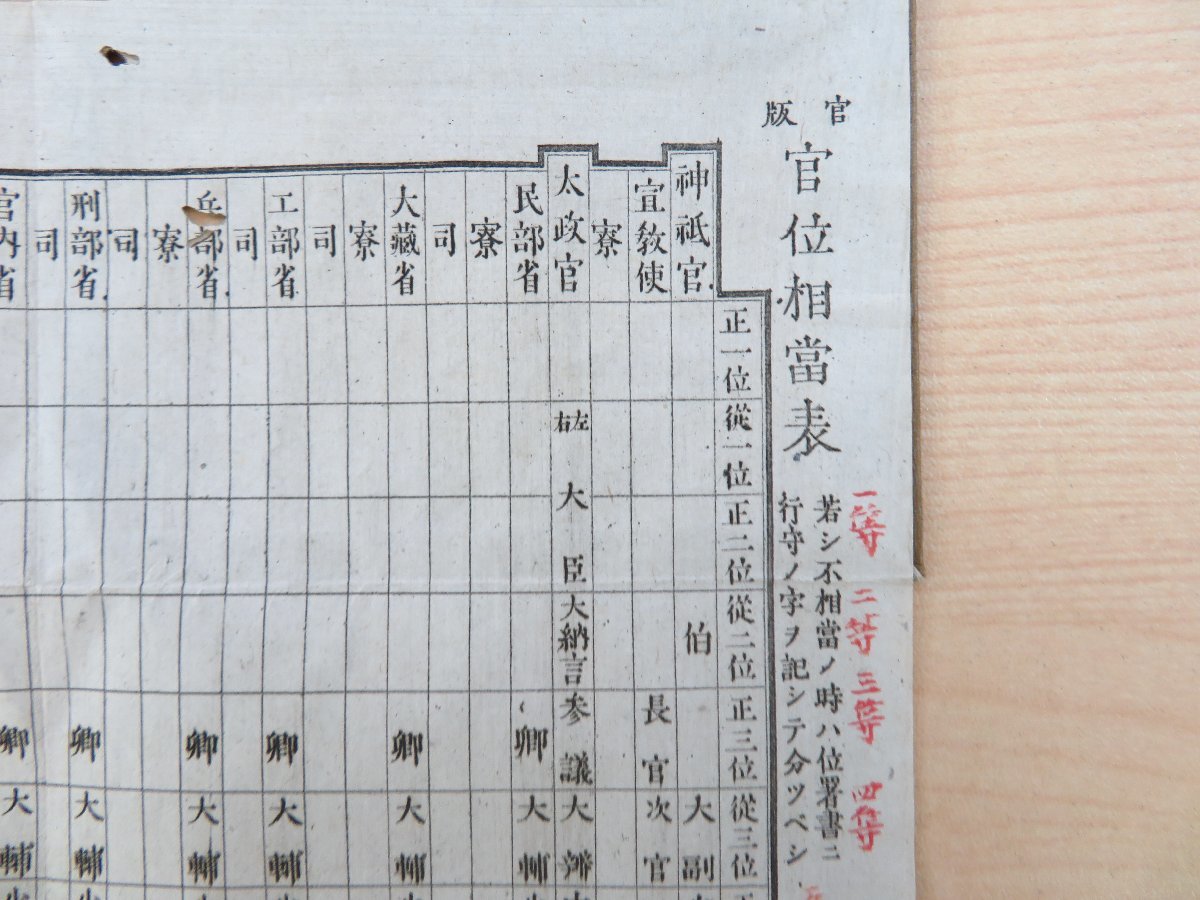 官版
官位相當表
若シ不相當ノ時ハ位署書ニ
行守ノ字ヲ記シテ分ツベシ
一等 二等 三等 四等
正一位 從一位 正二位 從二位 正三位 從三位
神祇官 伯 大副
宣教使 長官 次官
寮
太政官 左右大臣 大納言 参議 大辨
民部省 卿 大輔
寮
司
大藏省 卿 大輔
寮
司
工部省 卿 大輔
司
兵部省 卿 大輔
寮
司
刑部省 卿 大輔
司
宮内省 卿 大輔